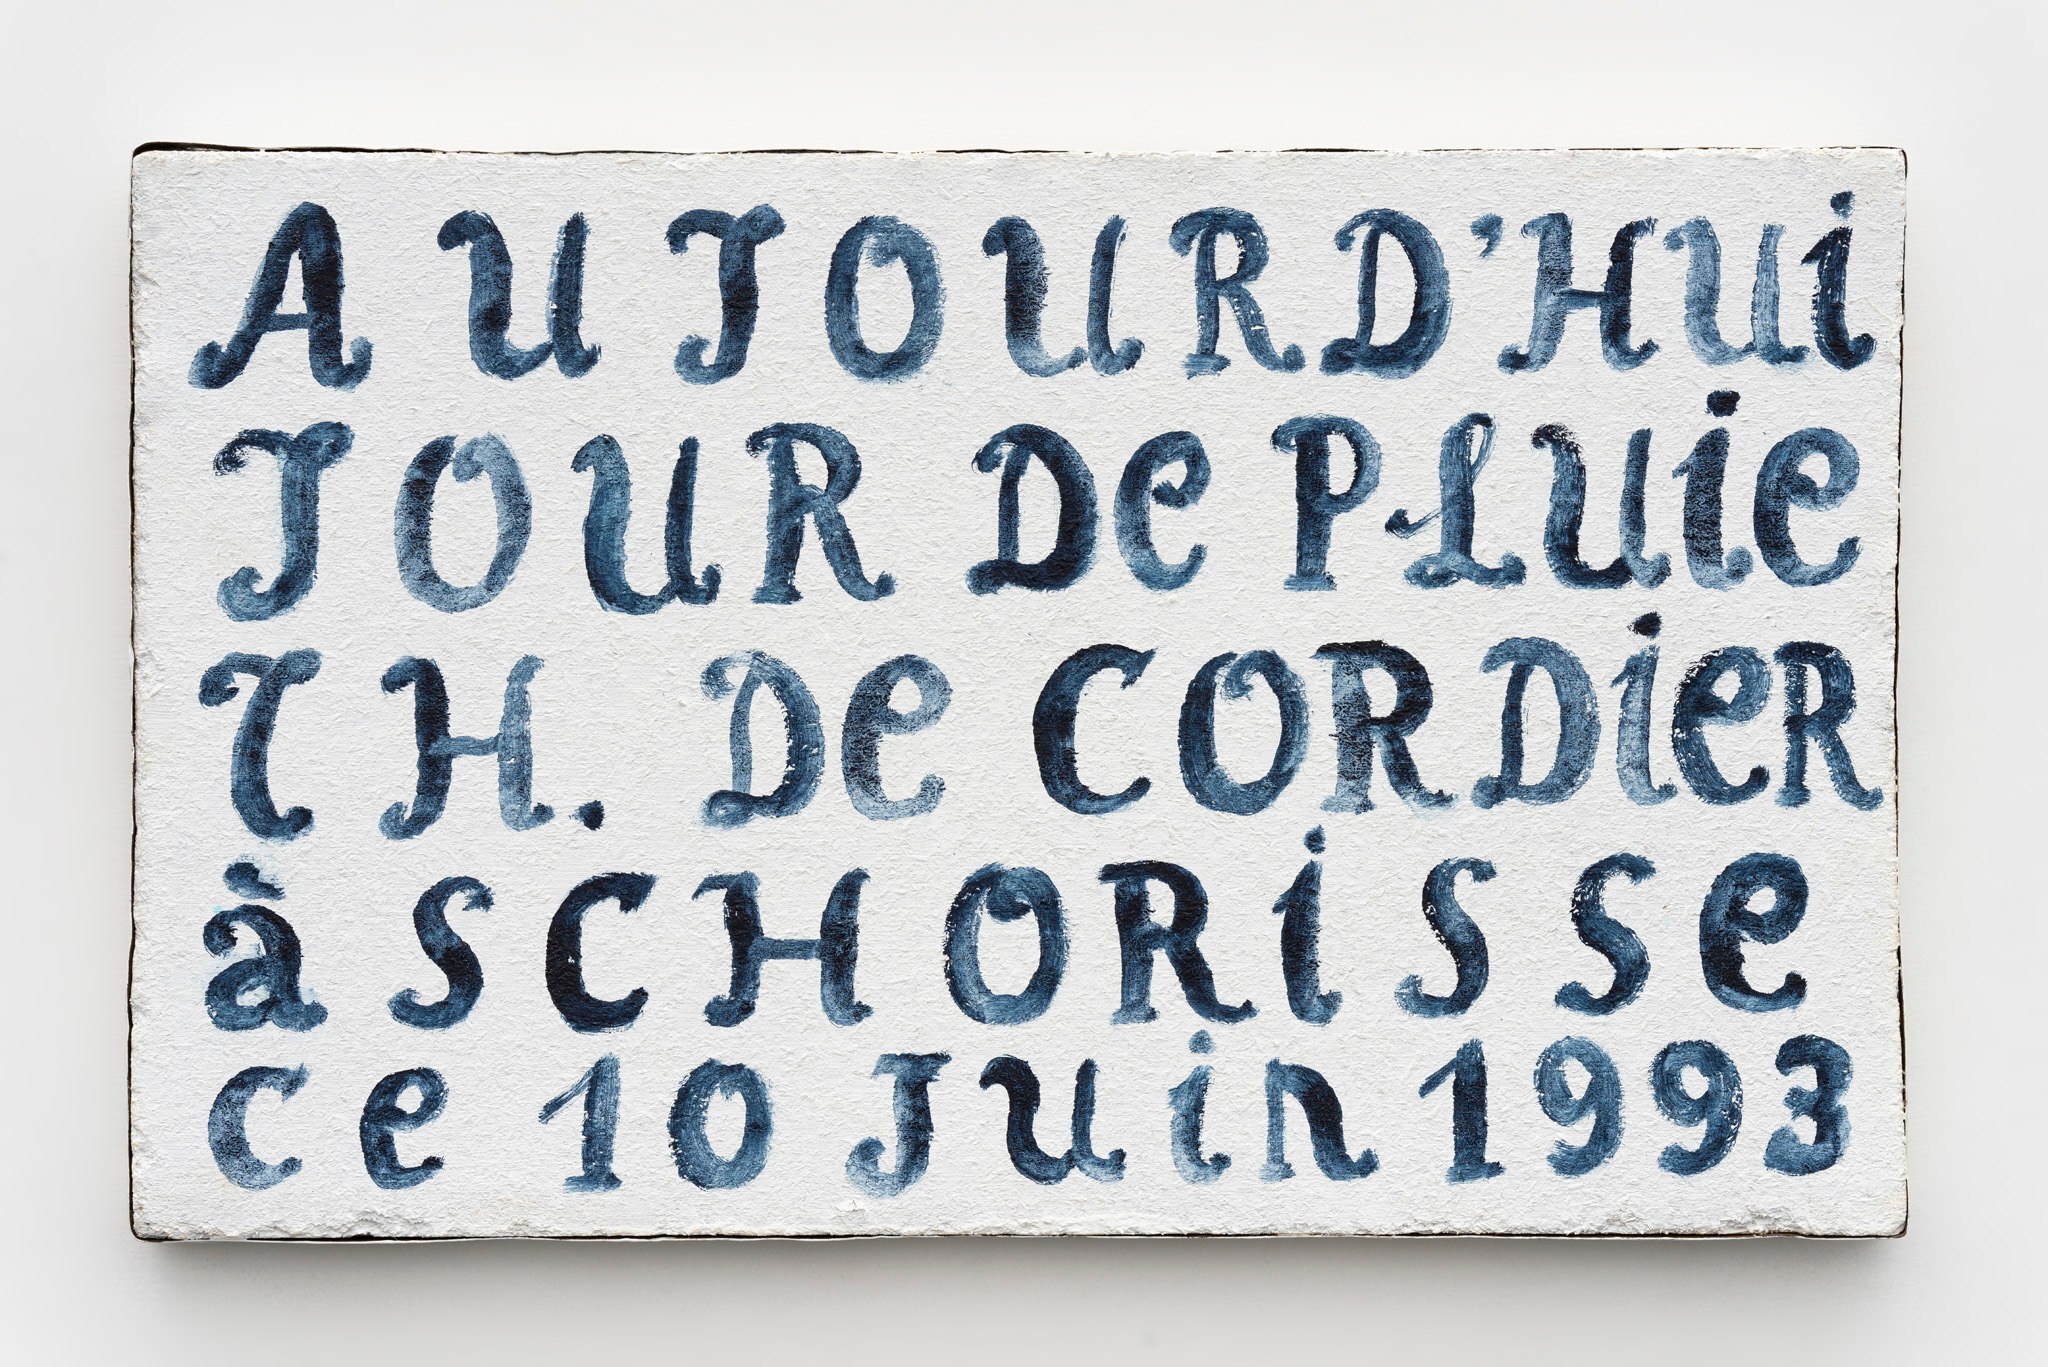 AUJOURD'HUi
JOUR De PLUie
TH. De CORDieR
à SCHORiSSe
ce 10 Juin 1993